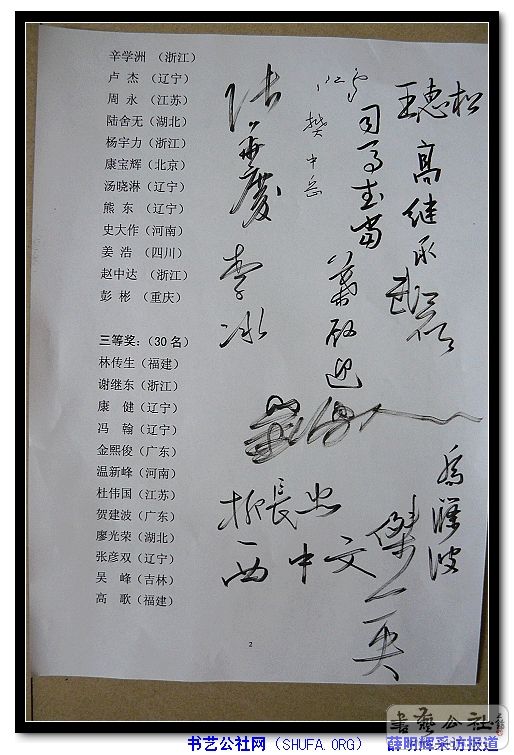 辛学洲（浙江）
卢 杰（辽宁）
周 永（江苏）
陆舍无（湖北）
杨宇力（浙江）
康宝辉（北京）
汤晓淋（辽宁）
熊 东（辽宁）
史大作（河南）
姜 浩（四川）
赵中达（浙江）
彭 彬（重庆）
三等奖：（30名）
林传生（福建）
谢继东（浙江）
康 健（辽宁）
冯 翰（辽宁）
金熙俊（广东）
温新峰（河南）
杜伟国（江苏）
贺建波（广东）
廖光荣（湖北）
张彦双（辽宁）
吴 峰（吉林）
高 歌（福建）
张华庆
李冰
樊中岳
高继承
柳長忠
西中文
2
書藝公社
书艺公社网（SHUFA.ORG） 薛明辉采访报道